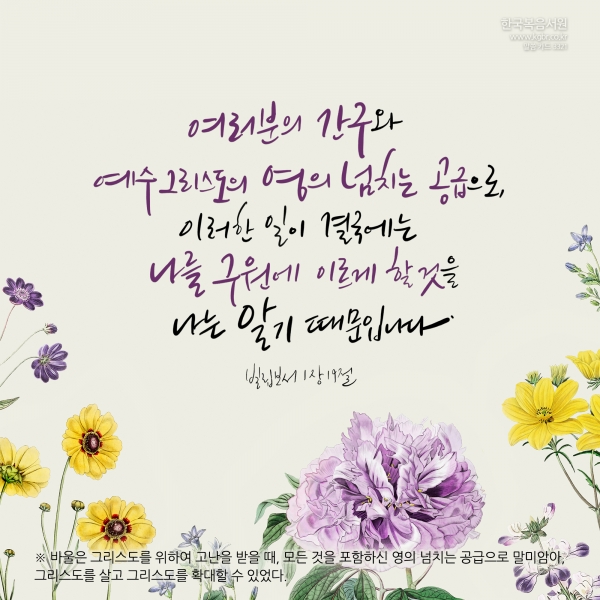 한국복음서원
www.kgbr.co.kr
여러분의 간구와
예수 그리스도의 영의 넘치는 공급으로,
이러한 일이 결국에는
나를 구원에 이르게 할 것을
나는 알기 때문입니다.
빌립보서 1장 19절
※ 바울은 그리스도를 위하여 고난을 받을 때, 모든 것을 포함하신 영의 넘치는 공급으로 말미암아,
그리스도를 살고 그리스도를 확대할 수 있었다.